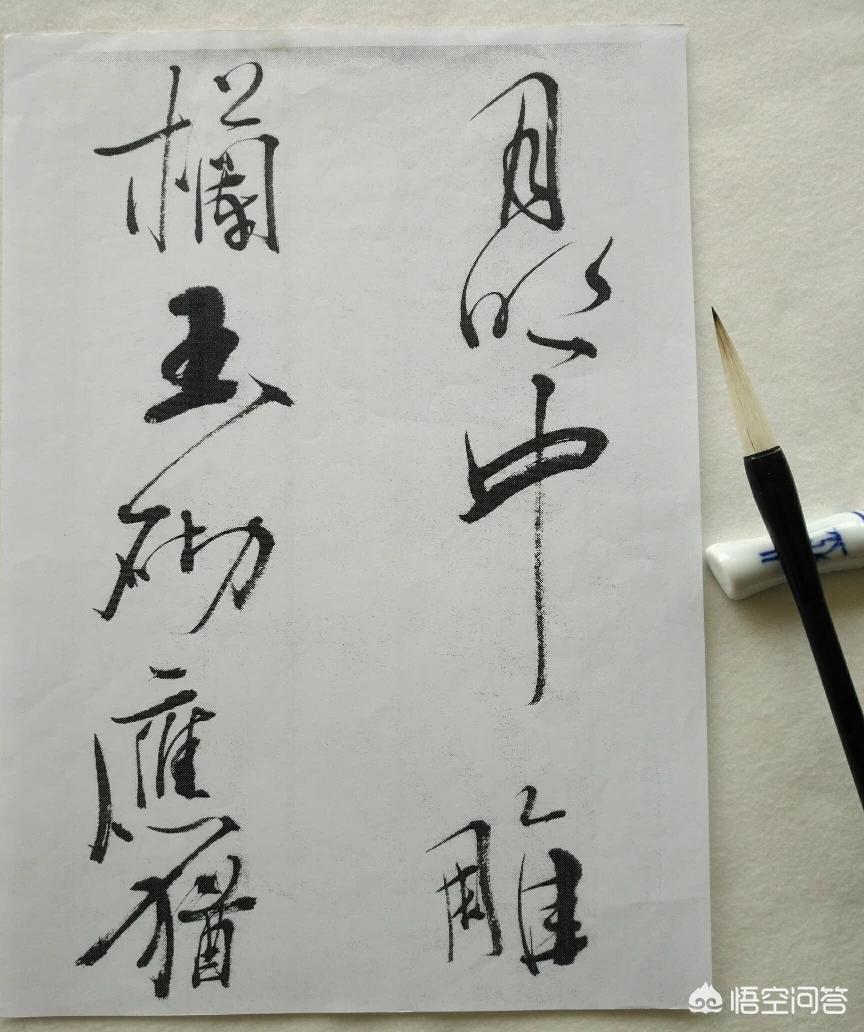 月明中雕
欄玉砌應猶
悟空问答